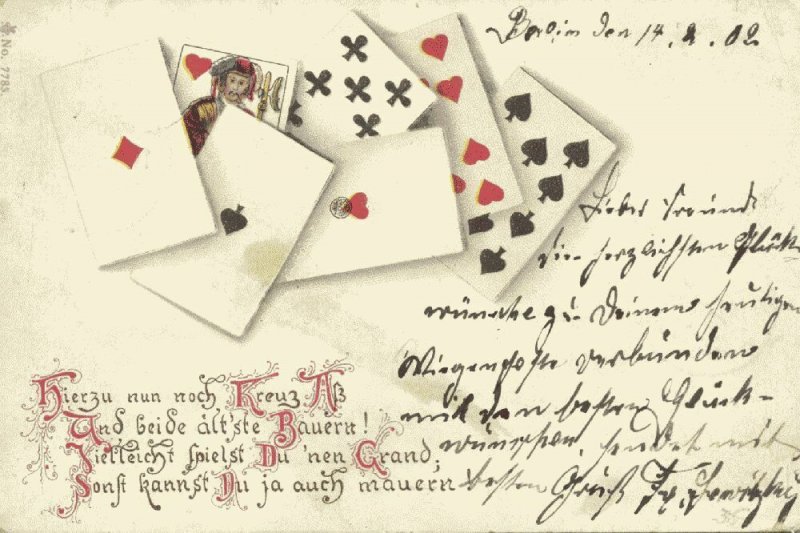 No. 7783.
Berlin den 14. 2. 02
Lieber Freund
die herzlichsten Glück-
wünsche zu Deinem heutigen
Wiegenfeste verbunden
mit den besten Glück-
wünschen, sendet mit
besten Gruß
Hierzu nun noch Kreuz Aß
Und beide ält'ste Bauern!
Vielleicht spielst Du 'nen Grand,
Sonst kannst Du ja auch mauern